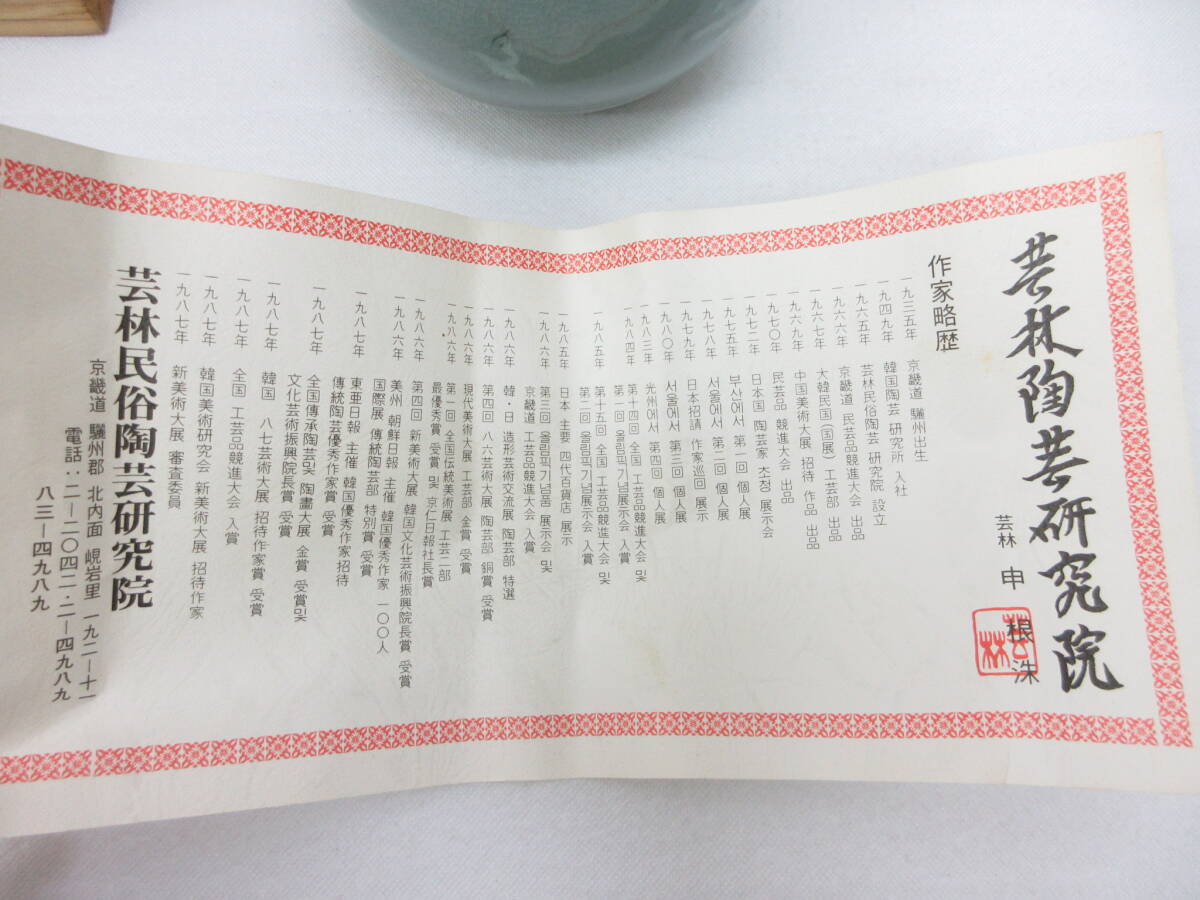 芸林陶芸研究院
芸林 申 根 洙
芸林
作家略歴
一九三五年 京畿道 驪州出生
一九四九年 韓国陶芸 研究所 入社
一九六五年 芸林民俗陶芸 研究院 設立
一九六六年 京畿道 民芸品競進大会 出品
一九六七年 大韓民国(国展) 工芸部 出品
一九六九年 中国美術大展 招待 作品 出品
一九七〇年 民芸品 競進大会 出品
一九七二年 日本国 陶芸家 초청 展示会
一九七五年 부산에서 第一回 個人展
一九七八年 서울에서 第二回 個人展
一九七九年 日本招請 作家巡回 展示
一九八〇年 서울에서 第三回 個人展
一九八三年 光州에서 第四回 個人展
一九八四年 第十四回 全国 工芸品競進大会 및
第一回 올림픽기념展示会 入賞
一九八五年 第十五回 全国 工芸品競進大会 및
第二回 올림픽기념展示会 入賞
一九八五年 日本 主要 四代百貨店 展示
一九八六年 第三回 올림픽기념품 展示会 및
京畿道 工芸品競進大会 入賞
一九八六年 韓・日 造形芸術交流展 陶芸部 特選
一九八六年 第四回 八六芸術大展 陶芸部 銅賞 受賞
一九八六年 現代美術大展 工芸部 金賞 受賞
一九八六年 第一回 全国伝統美術展 工芸二部
最優秀賞 受賞 및 京仁日報社長賞
一九八六年 第四回 新美術大展 韓国文化芸術振興院長賞 受賞
一九八六年 美州 朝鮮日報 主催 韓国優秀作家 一〇〇人
国際展 傳統陶芸部 特別賞 受賞
一九八七年 東亜日報 主催 韓国優秀作家招待
傳統陶芸優秀作家賞 受賞
一九八七年 全国傳承陶芸및 陶畵大展 金賞 受賞및
文化芸術振興院長賞 受賞
一九八七年 韓国 八七芸術大展 招待作家賞 受賞
一九八七年 全国 工芸品競進大会 入賞
一九八七年 韓国美術研究会 新美術大展 招待作家
一九八七年 新美術大展 審査委員
芸林民俗陶芸研究院
京畿道 驪州郡 北内面 峴岩里 一九二―十一
電話:二―二〇四二・二―四九八九
八三―四九八九